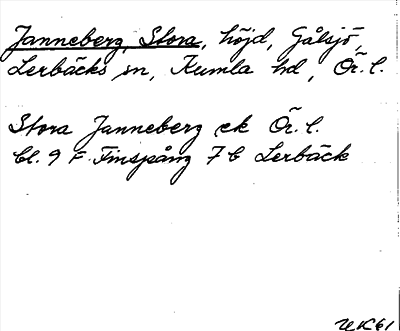 Janneberg, Stora, höjd, Gålsjö,
Lerbäcks sn, Kumla hd, Ör. l.
Stora Janneberg ek Ör. l.
bl. 9 F. Finspång 7 b Lerbäck